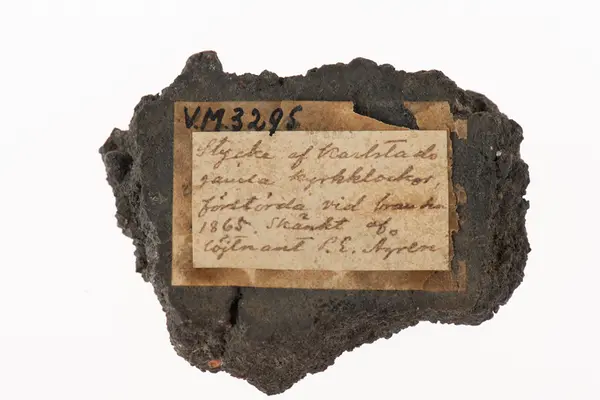 V.M.3295
Stycke af Karlstads
gamla kyrkklockor,
förstörda vid branden
1865. Skänkt af
löjtnant P.E. Agren